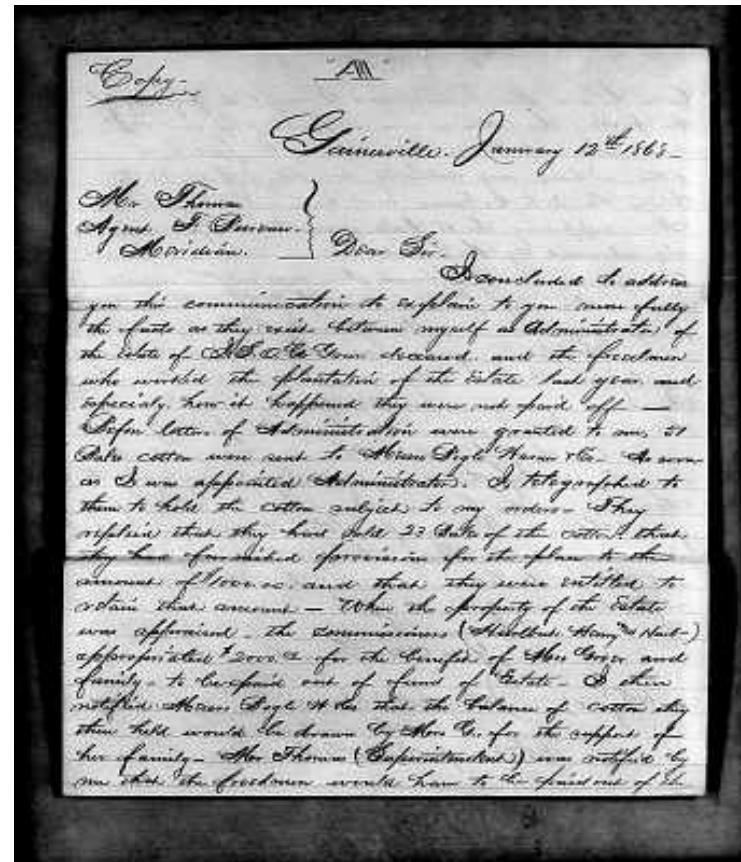 Copy-
"A"
Gainesville. January 12th 1868-
Mr Thomas
Agent F. Bureau.
Meridian.
Dear Sir-
I concluded to address
you this communication to explain to you more fully
the facts as they exist between myself as Administrator of
the Estate of deceased. and the freedmen
who worked the plantation of the Estate last year. and
especialy how it happened they were not paid off —
Before letters of Administration were granted to me, 51
Bales cotton were sent to Messrs & Co- As soon
as I was appointed Administrator. I telegraphed to
them to hold the cotton subject to my orders- They
replied that they had sold 23 Bales of the cotton. that
they had furnished provisions for the place to the
amount of and that they were entitled to
retain that amount — When the property of the Estate
was appraised - the commissioners (
appropriated $2000.00 for the benefit of Mrs and
family - to be paid out of fund of Estate - I then
notified Messrs & Co that the balance of cotton they
then held would be drawn by Mrs G. for the support of
her family - Mr Thomas (Superintendent) was notified by
me that the freedmen would have to be paid out of the